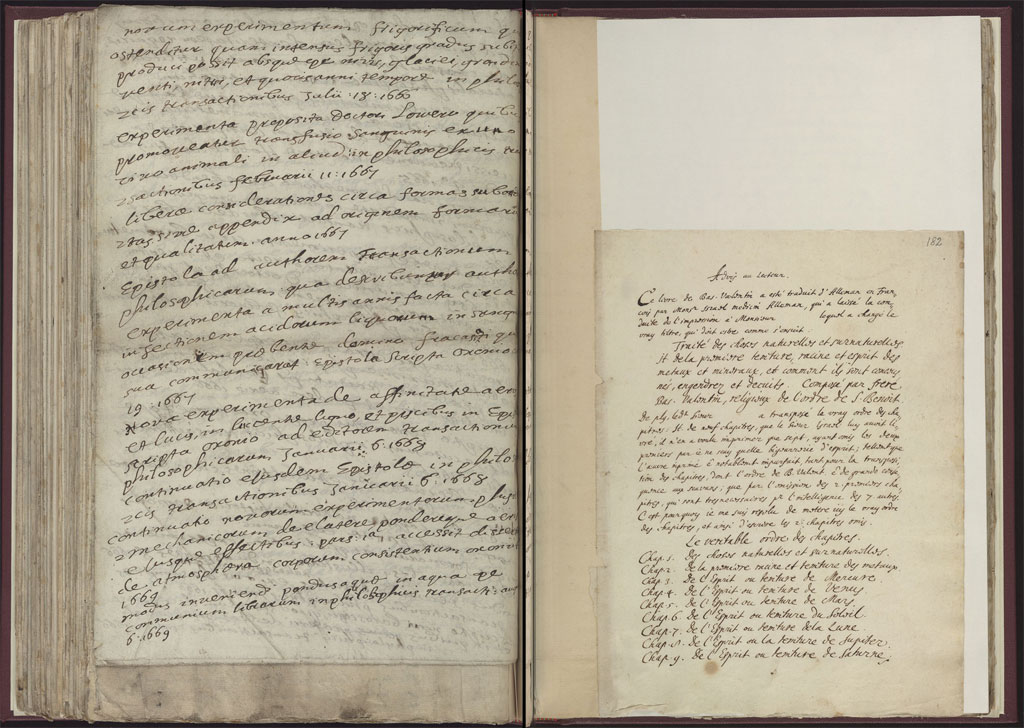 novum experimentum frigorificum qu
ostenditur quam intensus frigoris gradus subi
produci possit absque ope nivis, glaciei, grandi
venti, nitri, et quovis anni tempore in philo
transactionibus Julii :18: 1666
experimenta proposita doctori Lowero quibu
promoveatur transfusio sanguinis ex uno
vivo animali in aliud in philosophicis
sactionibus februarii 11: 1667
liberæ considerationes circa formas subor
sive appendix ad originem formaru
et qualitatum. anno 1667
Epistola ad authorem transactionum
philosophicarum, qua describuntur autho
experimenta a multis annis facta circa
infestionem acidorum liquorum in sangu
occasionem præbente domino fracassa qui
sua communicarat Epistola scripta oxonio
19 :1667
Nova experimenta de affinitate aer
et lucis, in lucente ligno, et piscibus in Epis
scripta oxonio ad editorem transactionum
philosophicarum Januarii 6 :1668
continuatio ejusdem Epistolæ in philo
transactionibus Januarii 6. 1668
continuatio novorum experimentorum phys
mechanicorum de elatere, pondereque aer
ejusque effectibus. pars 1a, accessit
de atmosphæra corporum consistentium oxoni
1669
modus inveniendi pondus aquæ in aqua pe
communium librarum in philosophicis transacti
6 :1669
182
Advis au lecteur.
Ce livre de Bas. Valentin a esté traduit d'Alleman en Fran
çois par Mons. Israel medicin Alleman, qui a laissé la con
duite de l'impression à Monsieur lequel a changé le
vray titre, qui doit estre comme s'ensuit.
Traité des choses naturelles et surnaturelles
It. de la premiere teinture, racine et esprit des
metaux et mineraux, et comment ils sont conceus
nés, engendrez et decuits. Composé par frere
Bas. Valentin, religieux de l'ordre de S. Benoit
De plus ledit Sieur a transposé le vray ordre des cha
pitres: It. de neuf chapitres, que le sieur Israel luy avoit li
vré, il n'en a voulu imprimer que sept, ayant omis les deux
premiers par je ne sçay quelle bizarrerie d'esprit; tellement que
l'œuvre imprimé est notablement imparfait, tant pour la transposi
tion des chapitres, dont l'ordre de B. Valent. est de grande conse
quence aux sçavans, que par l'omission des 2 premiers cha
pitres, qui sont tresnecessaires pr l'intelligence des 7 autres.
C'est pourquoy je me suis resolu de mettre icy le vray ordre
des chapitres, et aussi d'escrire les 2 chapitres omis.
Le veritable ordre des chapitres.
Chap. 1. Des choses naturelles et surnaturelles.
Chap. 2. De la premiere racine et teinture des metaux
Chap. 3. De l'Esprit ou teinture de Mercure.
Chap. 4. De l'Esprit ou teinture de Venus
Chap. 5. De l'Esprit ou teinture de Mars
Chap. 6. De l'Esprit ou teinture du Soleil
Chap. 7. De l'Esprit ou teinture de la Lune
Chap. 8. De l'Esprit ou la teinture de Jupiter.
Chap. 9. De l'Esprit ou teinture de Saturne